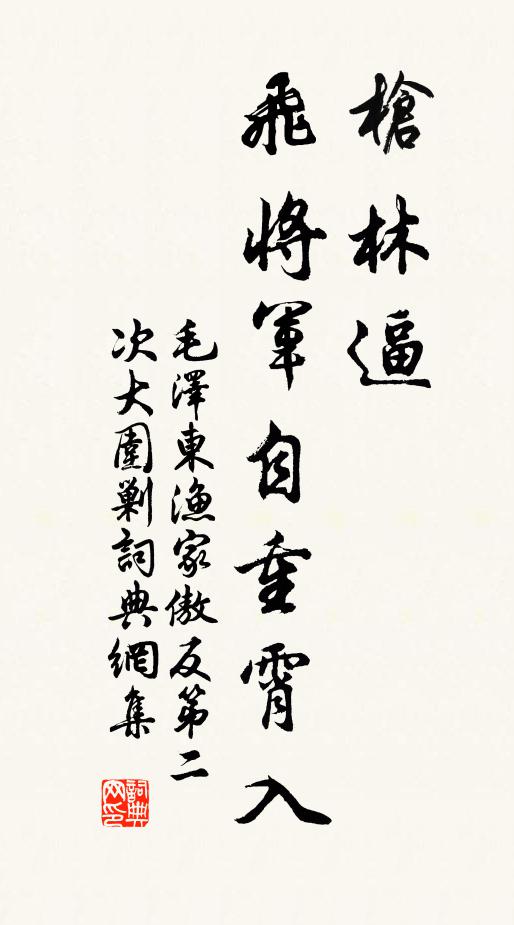 槍林逼
飛將軍自重霄入
毛澤東漁家傲反第二
次大圍剿詞典網集
詞典网印